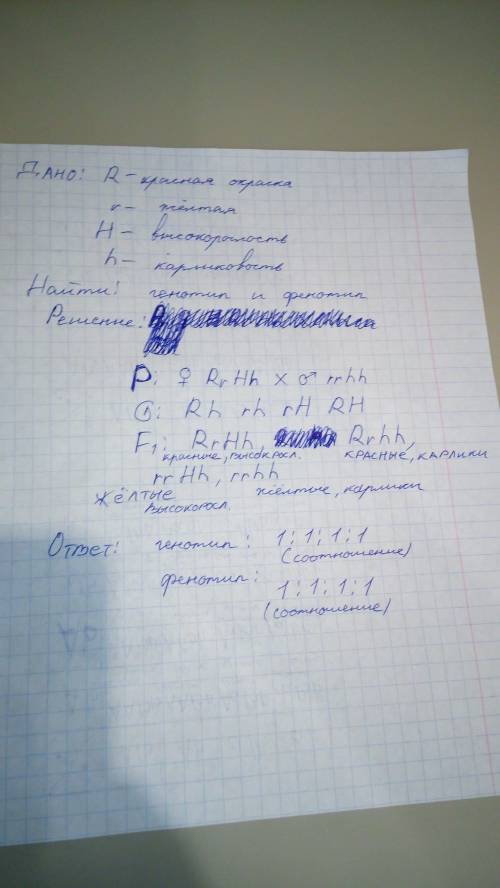 Дано: R - красная окраска
r - жёлтая
H - высокорослость
h - карликовость
Найти: генотип и фенотип
Решение:
P: ♀ RrHh × ♂ rrhh
G: Rh rh rH RH
F₁: RrHh, Rrhh,
красные, высокоросл. красные, карлики
rrHh, rrhh
жёлтые высокоросл. жёлтые, карлики
Ответ: генотип: 1:1:1:1
(соотношение)
фенотип: 1:1:1:1
(соотношение)